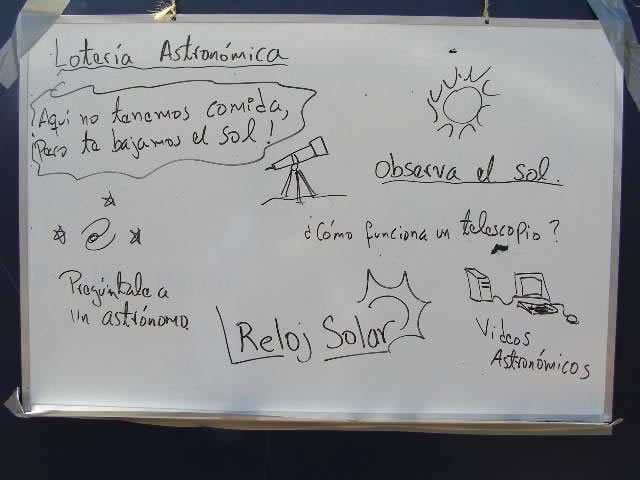 Lotería Astronómica
¡Aquí no tenemos comida,
Pero te bajamos el sol!
Observa el sol.
¿Cómo funciona un telescopio?
Pregúntale a
un astrónomo
Reloj Solar
Videos
Astronómicos